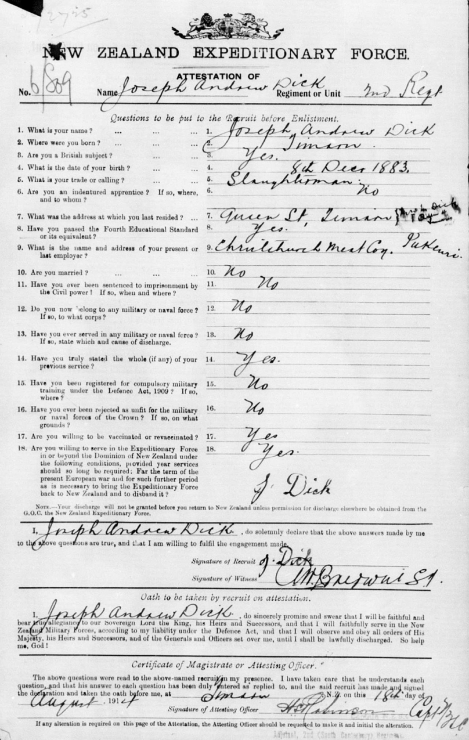 NEW ZEALAND EXPEDITIONARY FORCE.
ATTESTATION OF
No. 6/809 Name Joseph Andrew Dick Regiment or Unit 2nd Regt
Questions to be put to the Recruit before Enlistment.
1. What is your name? ... ... 1. Joseph Andrew Dick
2. Where were you born? ... ... 2. Timaru
3. Are you a British subject? ... ... 3. Yes.
4. What is the date of your birth? ... ... 4. 8th Decr 1883.
5. What is your trade or calling? ... ... 5. Slaughterman.
6. Are you an indentured apprentice? If so, where, 6. No
and to whom?
7. What was the address at which you last resided? ... 7. Queen St, Timaru
8. Have you passed the Fourth Educational Standard 8. Yes.
or its equivalent?
9. What is the name and address of your present or 9. Christchurch Meat Coy. Pukeuri.
last employer?
10. Are you married? ... ... ... 10. No
11. Have you ever been sentenced to imprisonment by 11. No
the Civil power? If so, when and where?
12. Do you now belong to any military or naval force? 12. No
If so, to what corps?
13. Have you ever served in any military or naval force? 13. No
If so, state which and cause of discharge.
14. Have you truly stated the whole (if any) of your 14. Yes.
previous service?
15. Have you been registered for compulsory military 15. No
training under the Defence Act, 1909? If so,
where?
16. Have you ever been rejected as unfit for the military 16. No
or naval forces of the Crown? If so, on what
grounds?
17. Are you willing to be vaccinated or revaccinated? 17. Yes
18. Are you willing to serve in the Expeditionary Force 18. Yes.
in or beyond the Dominion of New Zealand under
the following conditions, provided your services
should so long be required: For the term of the
present European war and for such further period
as is necessary to bring the Expeditionary Force
back to New Zealand and to disband it?
J. Dick
NOTE.—Your discharge will not be granted before you return to New Zealand unless permission for discharge elsewhere be obtained from the
G.O.C. the New Zealand Expeditionary Force.
I, Joseph Andrew Dick, do solemnly declare that the above answers made by me
to the above questions are true, and that I am willing to fulfil the engagement made.
Signature of Recruit J. Dick
Signature of Witness
Oath to be taken by recruit on attestation.
I, Joseph Andrew Dick, do sincerely promise and swear that I will be faithful and
bear true allegiance to our Sovereign Lord the King, his Heirs and Successors, and that I will faithfully serve in the New
Zealand Military Forces, according to my liability under the Defence Act, and that I will observe and obey all orders of His
Majesty, his Heirs and Successors, and of the Generals and Officers set over me, until I shall be lawfully discharged. So help
me, God!
Certificate of Magistrate or Attesting Officer.
The above questions were read to the above-named recruit in my presence. I have taken care that he understands each
question, and that his answer to each question has been duly entered as replied to, and the said recruit has made and signed
the declaration and taken the oath before me, at Timaru N.Z. on this 18th day of
August, 1914
Signature of Attesting Officer
If any alteration is required on this page of the Attestation, the Attesting Officer should be required to make it and initial the alteration.